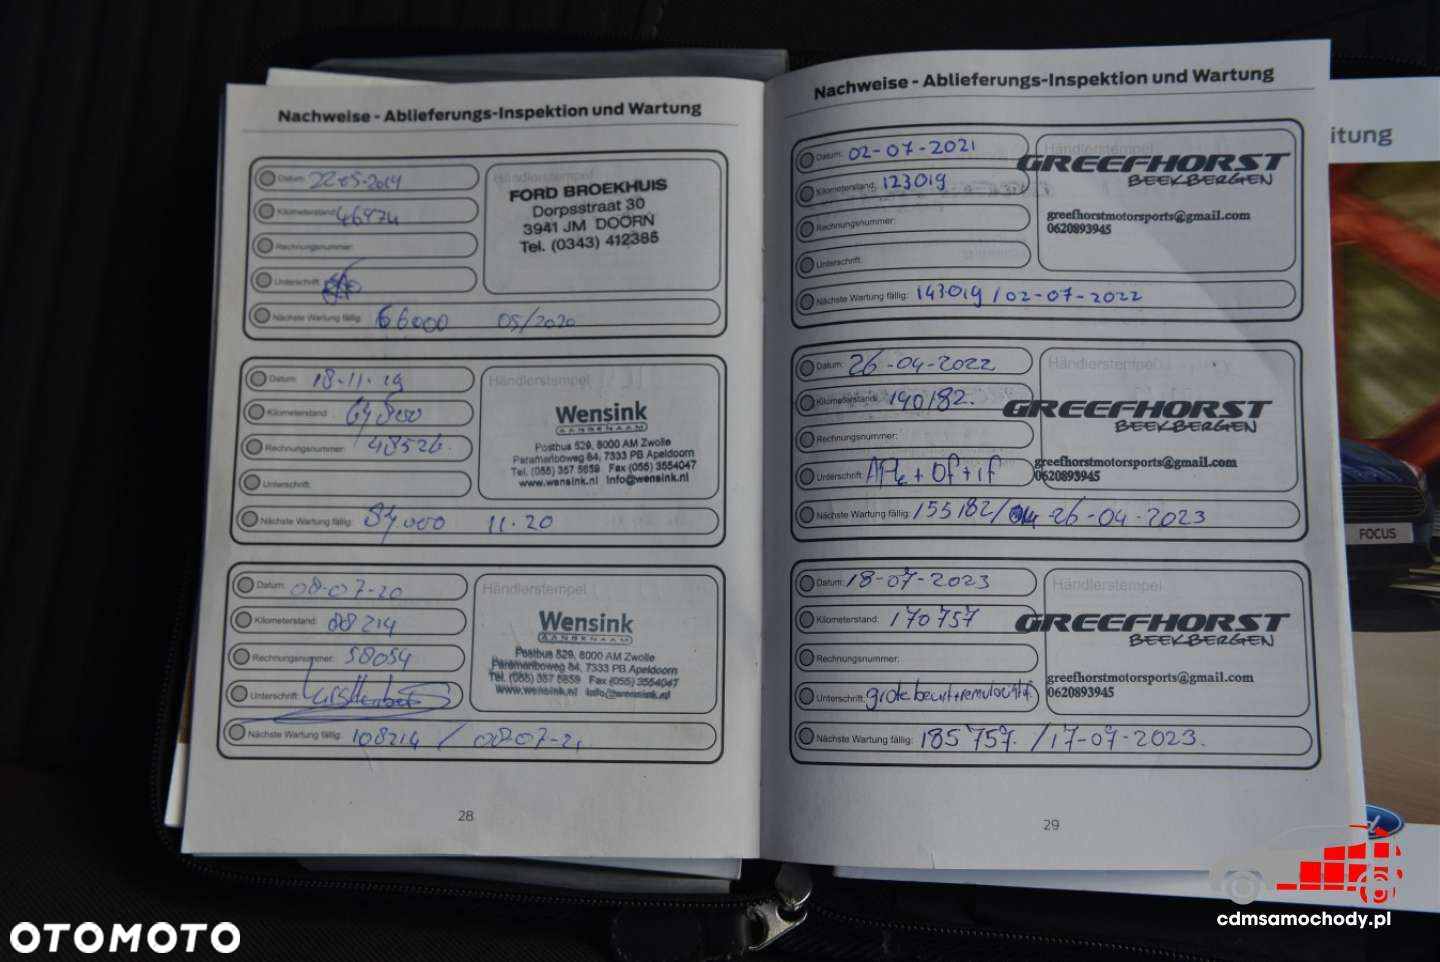 Nachweise - Ablieferungs-Inspektion und Wartung
Datum: 22-05-2019
Händlerstempel
FORD BROEKHUIS
Dorpsstraat 30
3941 JM DOORN
Tel. (0343) 412385
Kilometerstand: 46974
Rechnungsnummer:
Unterschrift:
Nächste Wartung fällig: 66000 05/2020
Datum: 18-11-19
Händlerstempel
Wensink
AANGENAAM
Postbus 529, 8000 AM Zwolle
Paramariboweg 84, 7333 PB Apeldoorn
Tel. (055) 357 5859 Fax (055) 3554047
www.wensink.nl info@wensink.nl
Kilometerstand:
Rechnungsnummer: 48526.
Unterschrift:
Nächste Wartung fällig: 84.000 11.20
Datum: 08-07-20
Händlerstempel
Wensink
AANGENAAM
Postbus 529, 8000 AM Zwolle
Paramariboweg 84, 7333 PB Apeldoorn
Tel. (055) 357 5859 Fax (055) 3554047
www.wensink.nl info@wensink.nl
Kilometerstand: 88214
Rechnungsnummer: 58054
Unterschrift:
Nächste Wartung fällig: 108214 / 0807-21
28
Nachweise - Ablieferungs-Inspektion und Wartung
Datum: 02-07-2021
Händlerstempel
GREEFHORST
BEEKBERGEN
greefhorstmotorsports@gmail.com
0620893945
Kilometerstand: 123019
Rechnungsnummer:
Unterschrift:
Nächste Wartung fällig: 143019 / 02-07-2022
Datum: 26-04-2022
Händlerstempel
GREEFHORST
BEEKBERGEN
greefhorstmotorsports@gmail.com
0620893945
Kilometerstand: 140182.
Rechnungsnummer:
Unterschrift: + of + if
Nächste Wartung fällig: 155182/ 26-04-2023
Datum: 18-07-2023
Händlerstempel
GREEFHORST
BEEKBERGEN
greefhorstmotorsports@gmail.com
0620893945
Kilometerstand: 170757
Rechnungsnummer:
Unterschrift: grote beurt+remvloeistof
Nächste Wartung fällig: 185757. /17-07-2023.
29
itung
FOCUS
OTOMOTO
cdmsamochody.pl